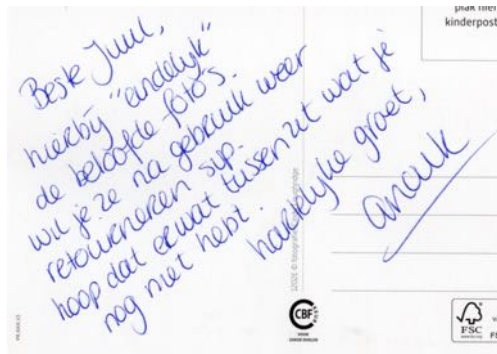 Beste Juul,
hierbij "eindelijk"
de beloofde foto's.
wil je ze na gebruik weer
retourneren svp.
hoop dat er wat tussen zit wat je
nog niet hebt.
hartelijke groet,
anouk
kinderpost
CBF
FSC